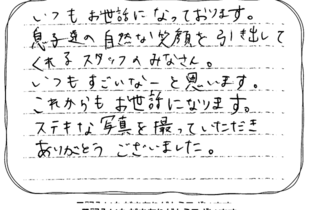 いつもお世話になっております。
息子達の自然な笑顔を引き出して
くれるスタッフのみなさん。
いつもすごいなーと思います。
これからもお世話になります。
ステキな写真を撮っていただき
ありがとうございました。